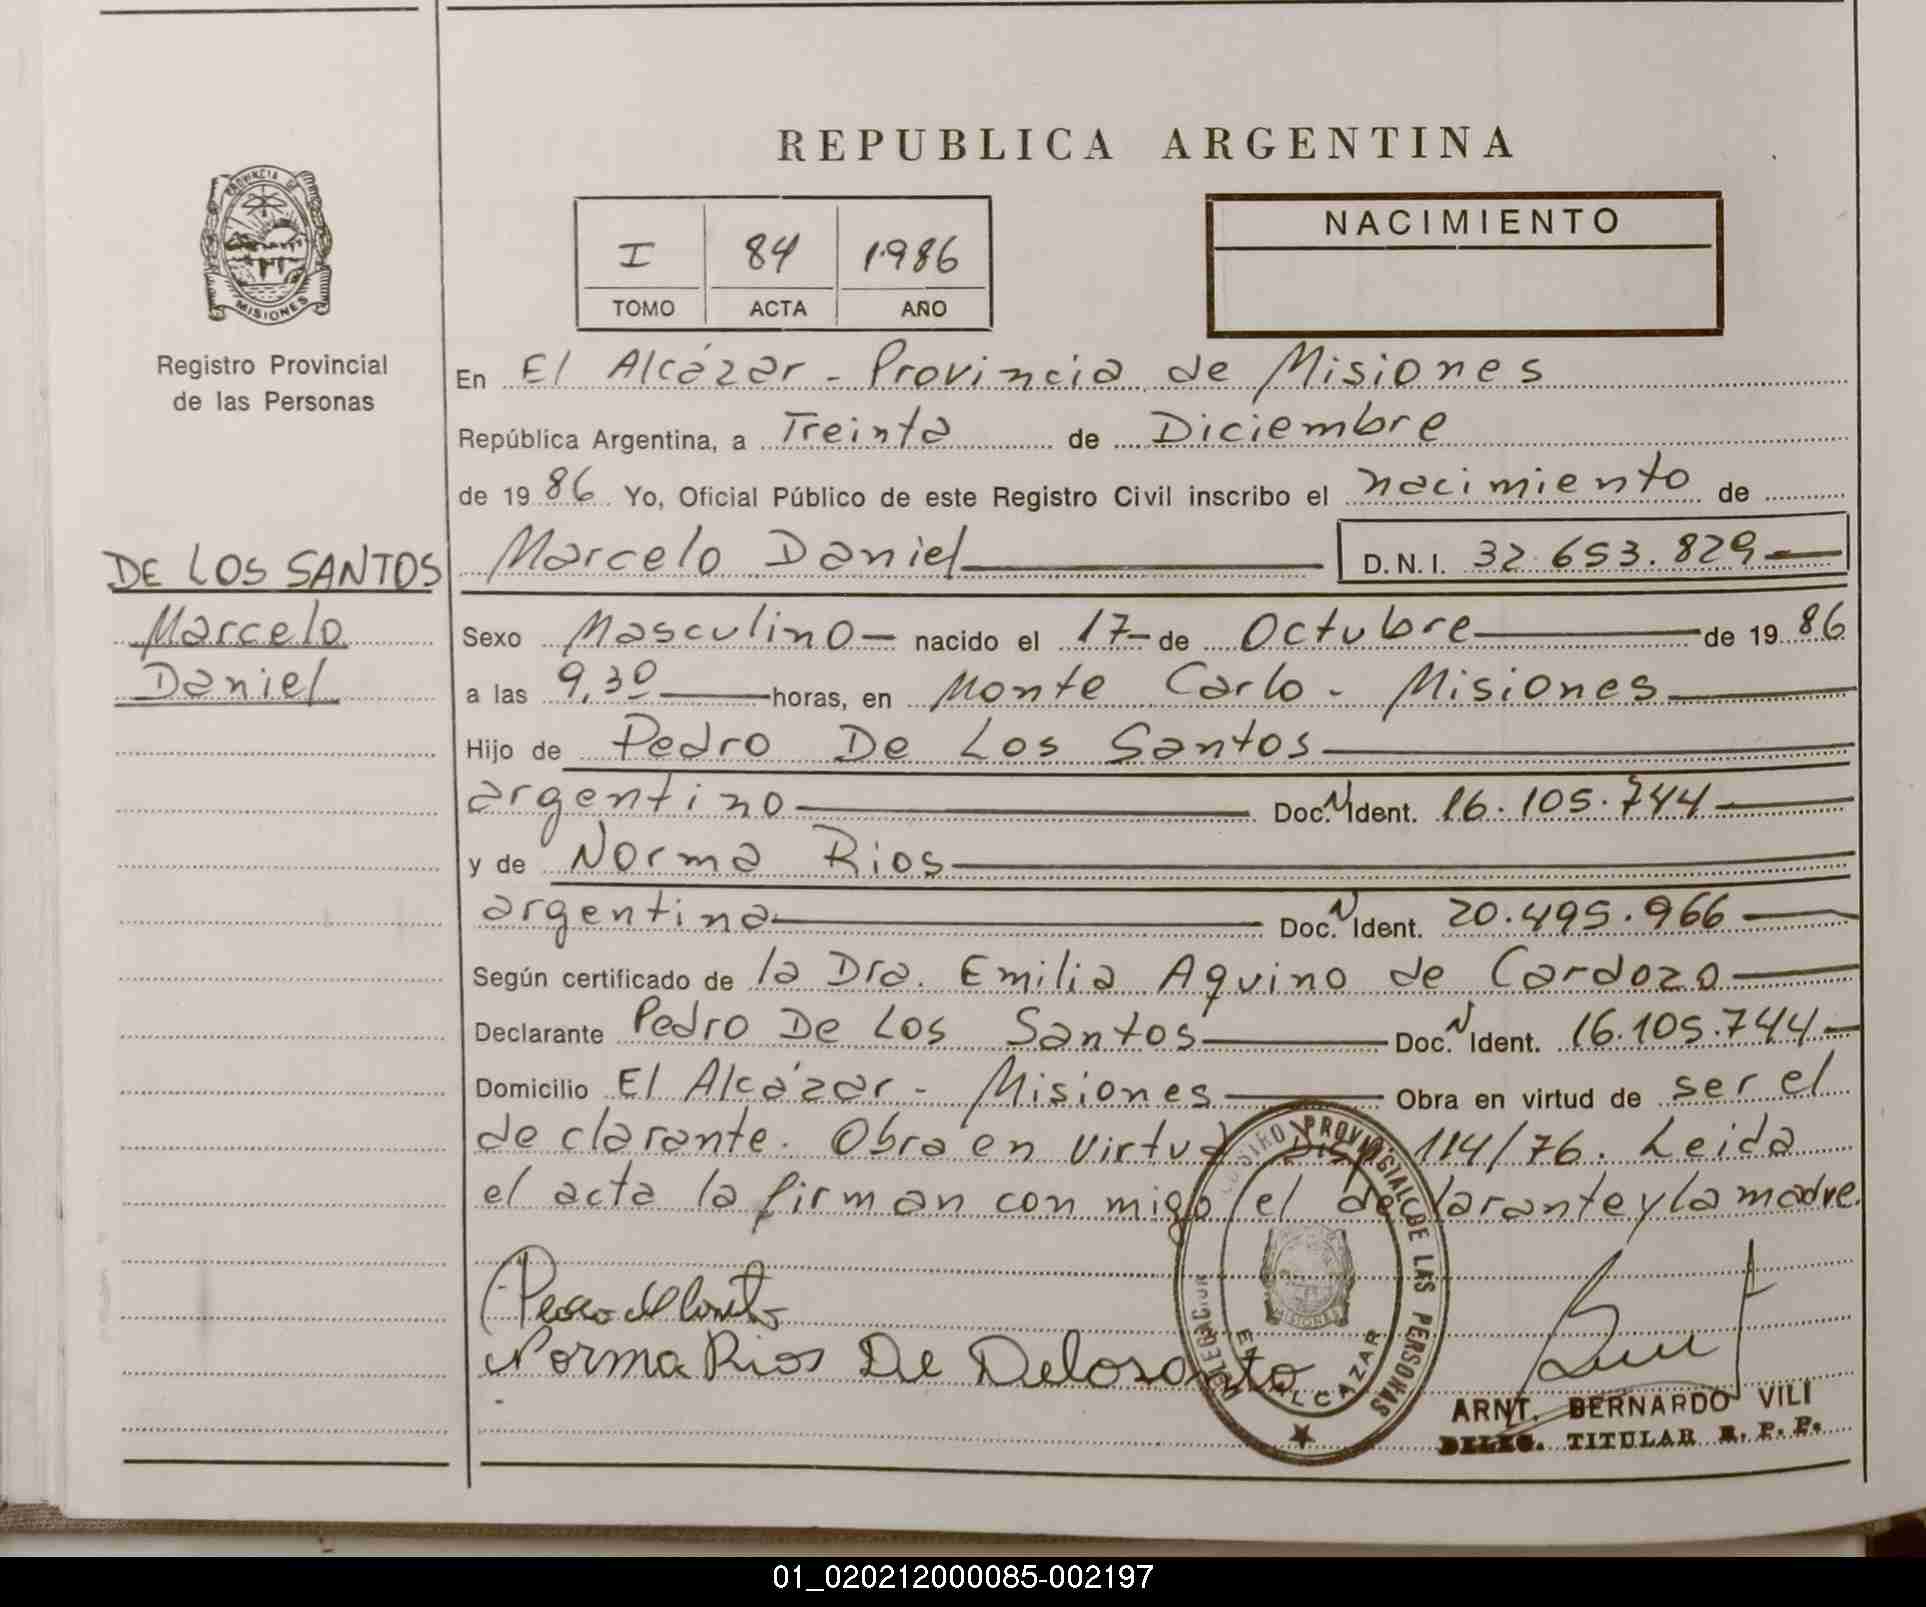 REPUBLICA ARGENTINA
PROVINCIA DE
MISIONES
Registro Provincial
de las Personas
I 84 1986
TOMO ACTA AÑO
NACIMIENTO
En El Alcázar - Provincia de Misiones
República Argentina, a Treinta de Diciembre
de 1986 Yo, Oficial Público de este Registro Civil inscribo el nacimiento de
DE LOS SANTOS
Marcelo
Daniel
Marcelo Daniel D.N.I. 32.653.829
Sexo Masculino nacido el 17 de Octubre de 1986
a las 9,30 horas, en Monte Carlo - Misiones
Hijo de Pedro De Los Santos
argentino Doc. N Ident. 16.105.744
y de Norma Rios
argentina Doc. N Ident. 20.495.966
Según certificado de la Dra. Emilia Aquino de Cardozo
Declarante Pedro De Los Santos Doc. N Ident. 16.105.744
Domicilio El Alcázar - Misiones Obra en virtud de ser el
declarante. Obra en virtud 114/76. Leida
el acta la firman con migo el declarante y la madre.
Norma Rios De Delosanto
PROVINCIAL DE LAS PERSONAS
EL ALCAZAR
MISIONES
ARNT. BERNARDO VILI
DELEG. TITULAR R. P. P.
01_020212000085-002197